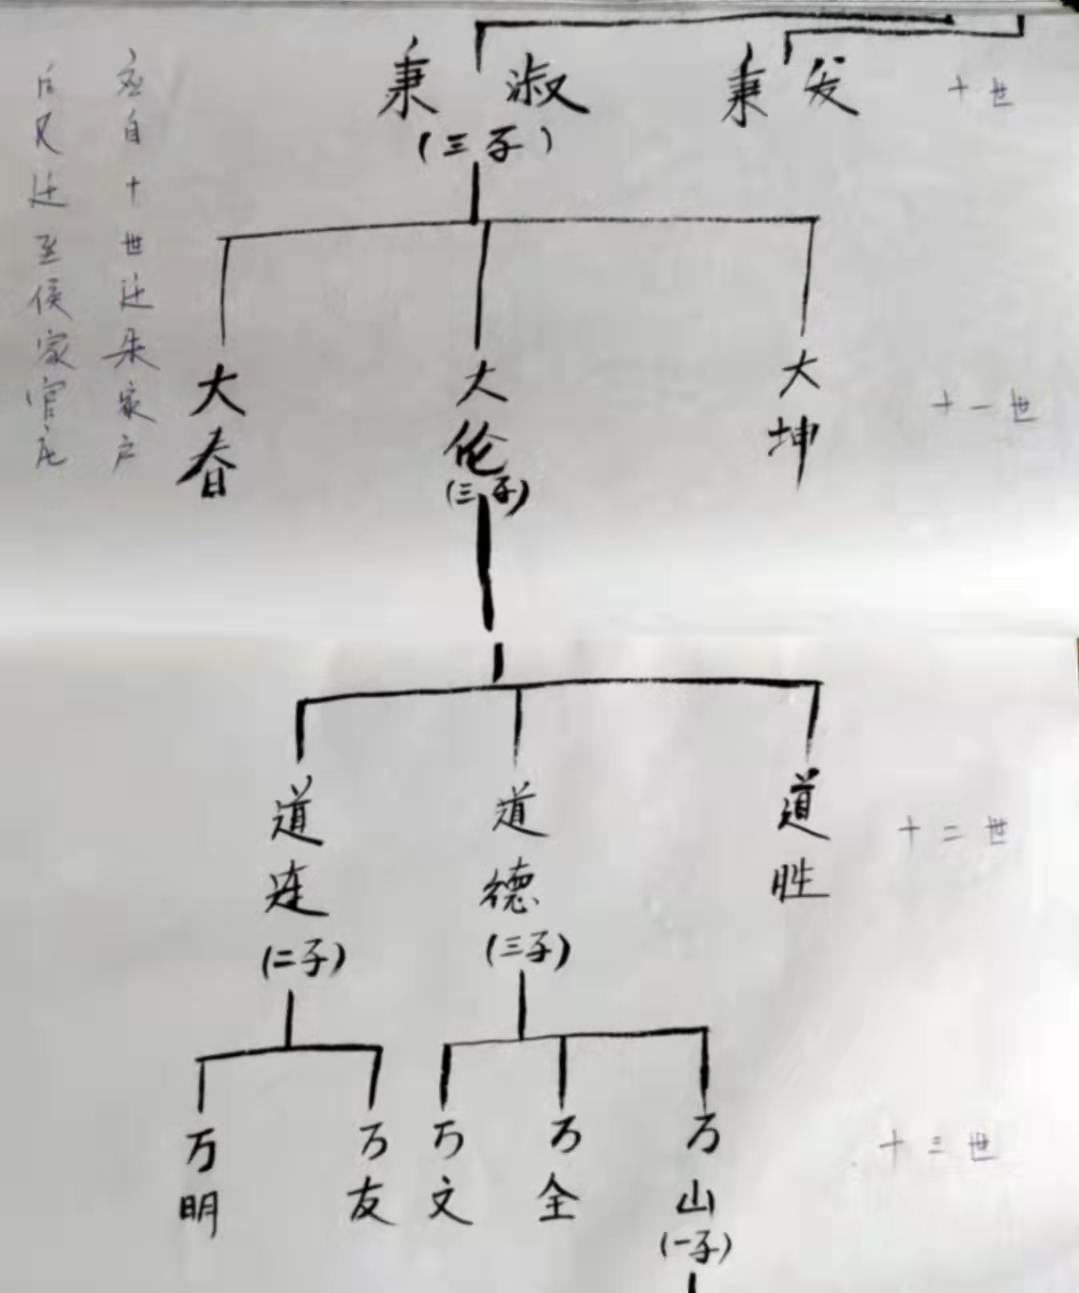 秉淑
秉发
十世
(三子)
大春
大伦
大坤
十一世
(三子)
道连
道德
道胜
十二世
(二子)
(三子)
万明
万友
万文
万全
万山
十三世
(一子)
自十世迁朱家户
后又迁至侯家官庄